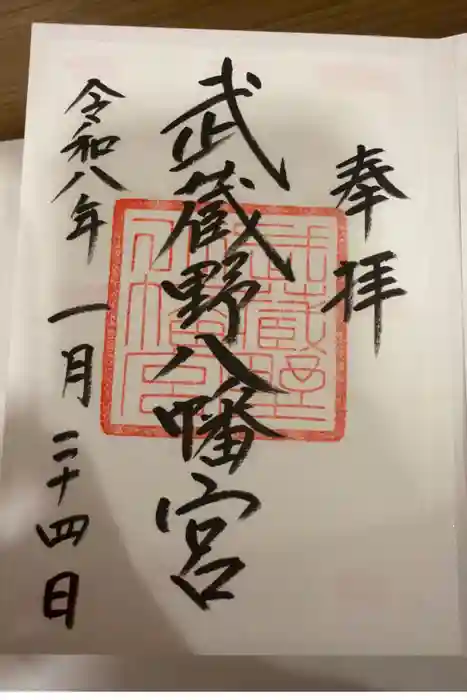 奉拝
武蔵野八幡宮
令和八年一月二十四日
武蔵野八幡宮